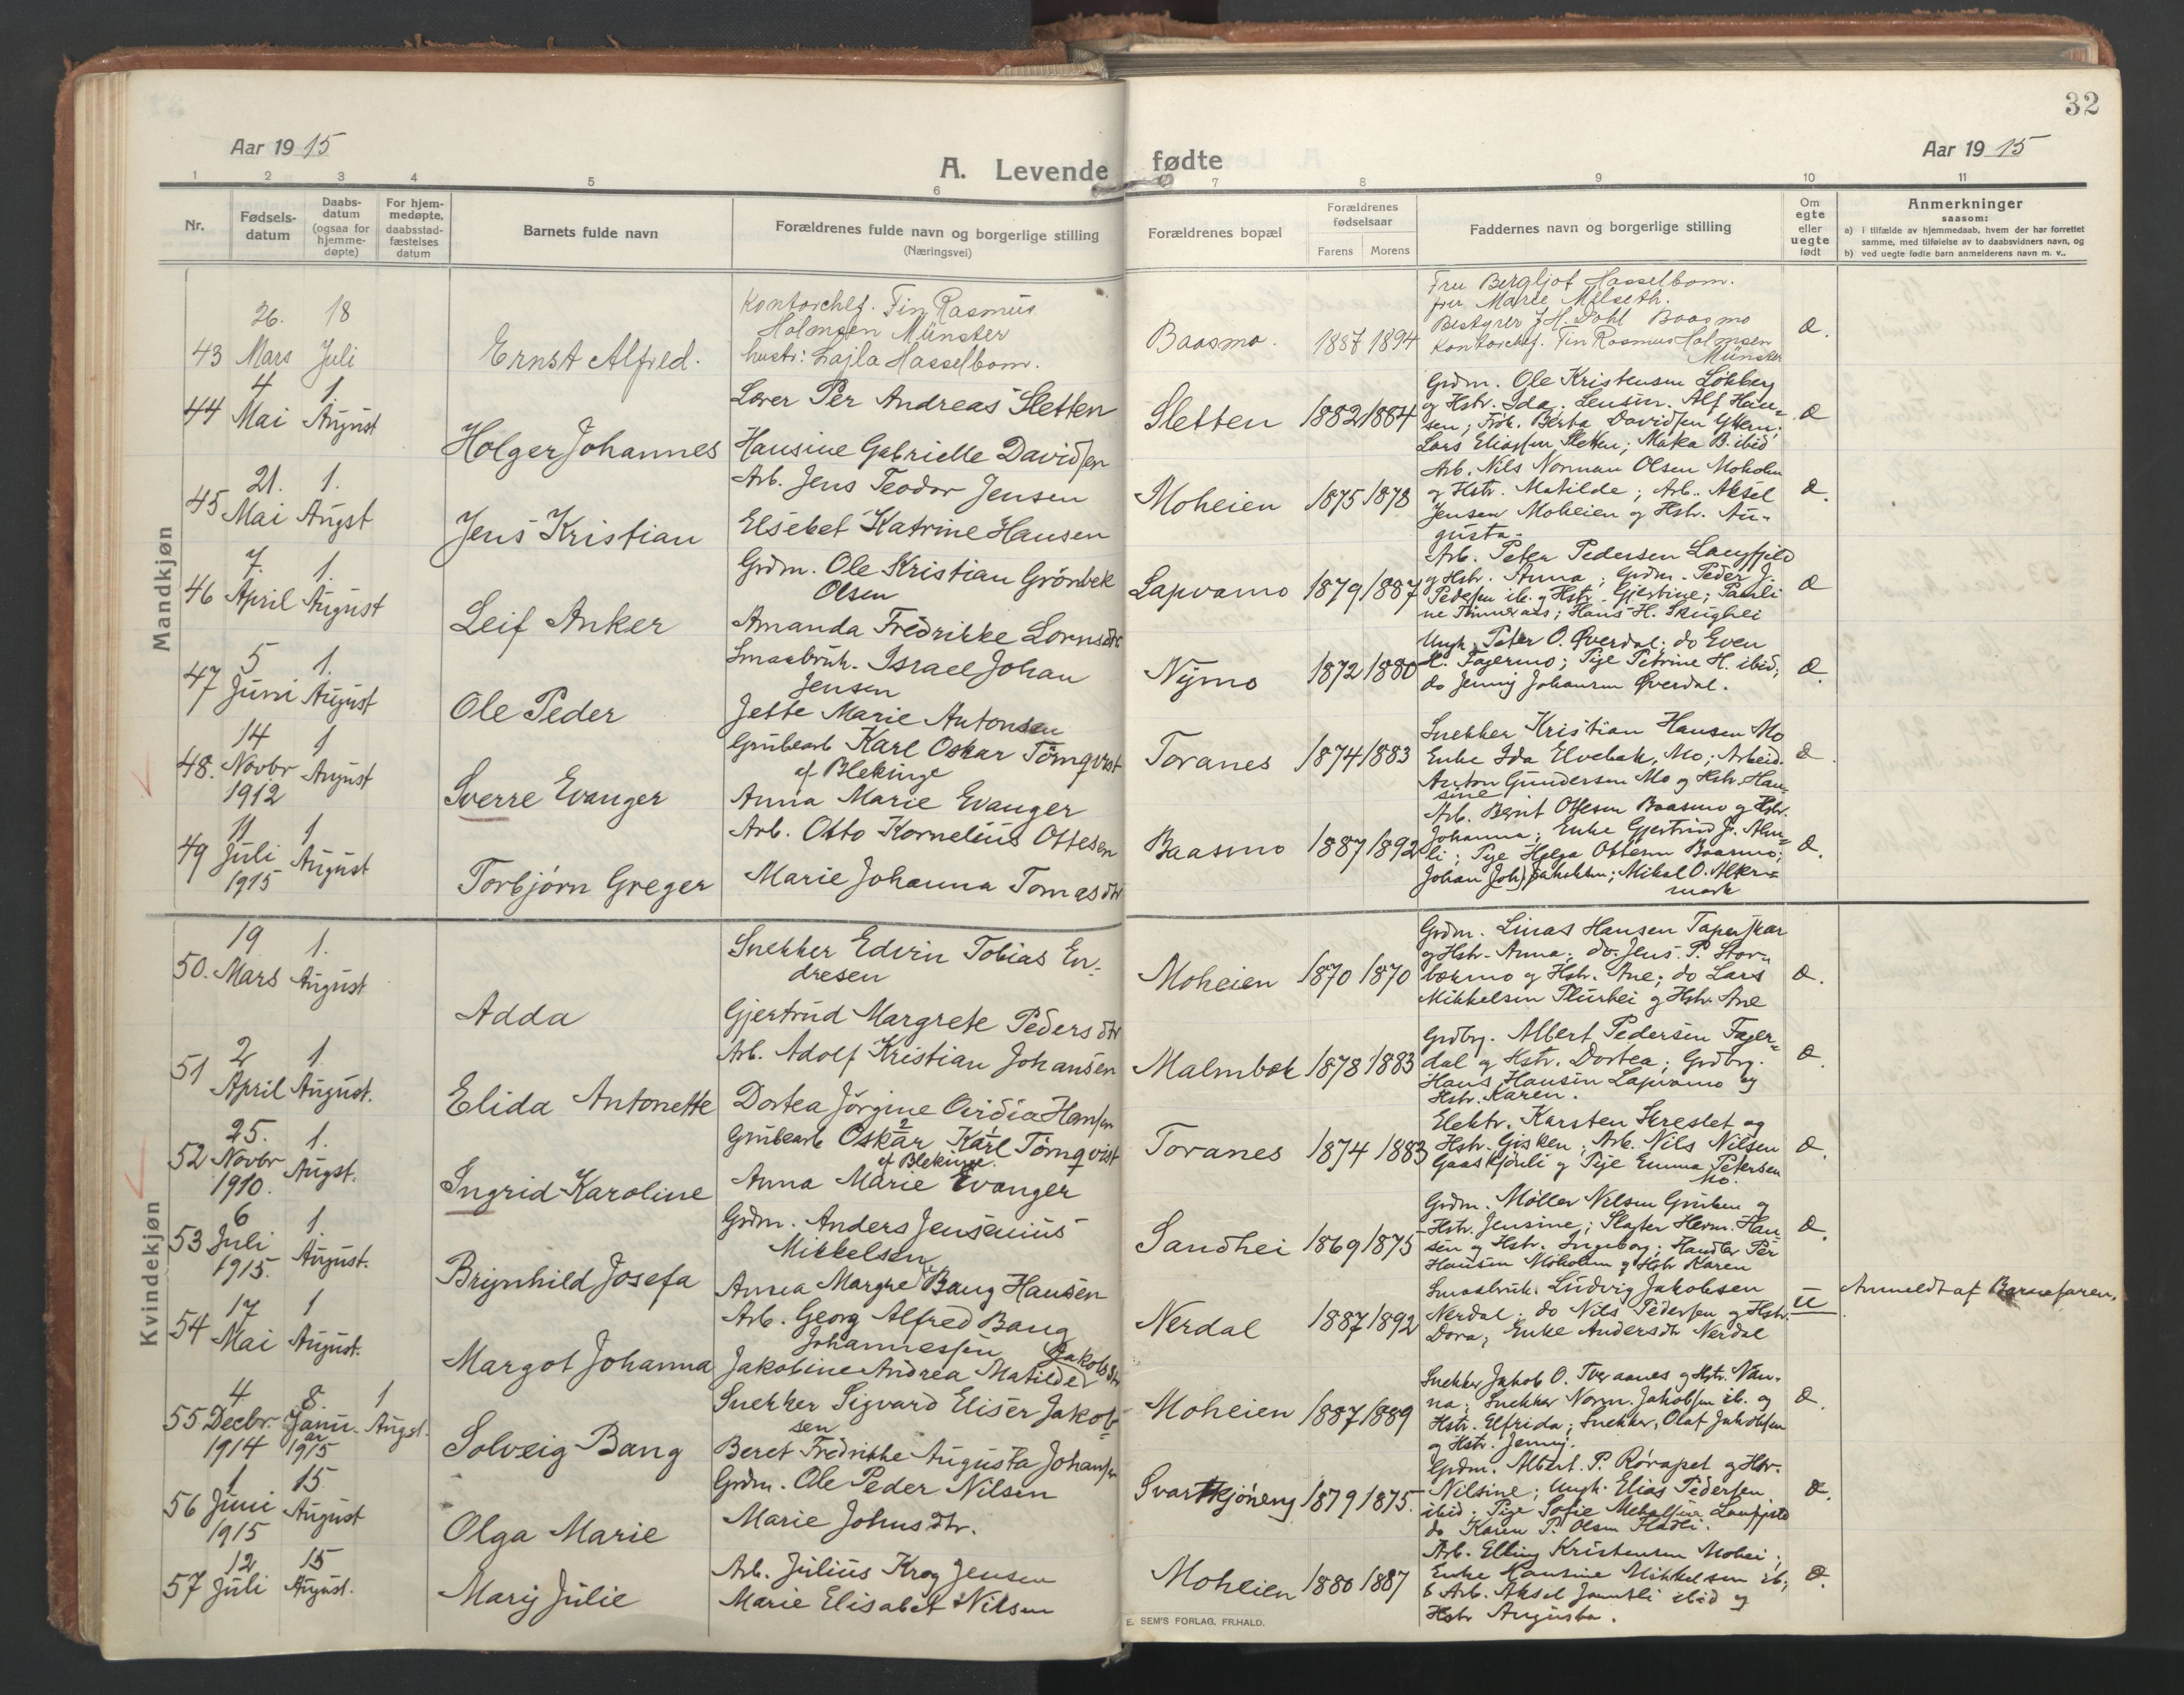 32
Aar 1915
A. Levende fødte
Aar 1915
1 2 3 4 5 6 7 8 9 10 11
Nr.
Fødsels-
datum
Daabs-
datum
(ogsaa for
hjemme-
døpte)
For hjem-
medøpte,
daabsstad-
fæstelses
datum
Barnets fulde navn
Forældrenes fulde navn og borgerlige stilling
(Næringsvei)
Forældrenes bopæl
Forældrenes
fødselsaar
Farens Morens
Faddernes navn og borgerlige stilling
Om
egte
eller
uegte
født
Anmerkninger
saasom:
a) i tilfælde av hjemmedaab, hvem der har forrettet
samme, med tilføielse av to daabsvidners navn, og
b) ved uegte fødte barn anmelderens navn m. v..
Mandkjøn
43
26.
Mars
18
Juli
Ernst Alfred.
Kontorchef. Fin Rasmus
Holmsen Münster
hustr: Lajla Hasselbom.
Baasmo.
1887 1894
Fru Bergljot Hasselbom.
fru Marie Milseth.
Bestyrer J.H. Dahl Baasmo
Kontorchef. Fin Rasmus Holmsen
Münster
Æ.
44
4
Mai
1.
August
Holger Johannes
Lærer Per Andreas Sletten
Hansine Gabrielle Davidsen
Sletten
1882 1884
Grdm. Ole Kristensen Løkberg
og Hstr. Ida; Lensm. Alf Han-
sen; Frk. Berta Davidsen Ytteren;
Lars Eliassen Sletten; B. ibid
Æ
45
21.
Mai
1.
Augst
Jens Kristian
Arb. Jens Teodor Jensen
Elsebet Katrine Hansen
Moheien
1875 1878
Arb. Nils Norman Olsen Moholm
og Hstr. Matilde; Arb. Aksel
Jensen Moheien og Hstr. Au-
gusta.
Æ.
46
7.
April
1.
August
Leif Anker
Grdm. Ole Kristian Grönbek
Olsen
Amanda Fredrikke Lornsdtr
Lapvamo
1879 1887
Arb. Peter Pedersen Langfjeld
og Hstr. Anna; Grdm. Peder J.
Pedersen ib. og Hstr. Gjertine; Pauli
ne Timmeraas; Hans H. Skughei
Æ
47
5
Juni
1.
August
Ole Peder
Smaabruk. Israel Johan
Jensen
Jette Marie Antonsen
Nymo
1872 1880
Ungk. Peter O. Øverdal; do Even
H. Fagermo; Pige Petrine H. ibid;
do Jenny Johansen Øverdal.
Æ.
48.
14
Novbr
1912
1
August
Sverre Evanger
Grubearb Karl Oskar Törnqvist
af Blekinge
Anna Marie Evanger
Toranes
1874 1883
Snekker Kristian Hansen Mo
Enke Ida Elvebak, Mo; Arbeid.
Anton Gundersen Mo og Hstr. Han-
sine
Æ.
49
11
Juli
1915
1
August
Torbjörn Greger
Arb. Otto Kornelius Ottesen
Marie Johanna Tomasdtr
Baasmo
1887 1892
Arb. Bernt Ottesen Baasmo og Hstr.
Johanna; Enke Gjertrud J. Alm-
li; Pige Helga Ottesen Baasmo;
Johan Joh. Jakobsen; Mikal O. Aker-
mark
Æ.
Kvindekjøn
50.
19
Mars
1.
August
Adda
Snekker Edvin Tobias En-
dresen
Gjertrud Margrete Pedersdtr
Moheien
1870 1870
Grdm. Linas Hansen Taperskar
og Hstr. Anna; do. Jens P. Stor-
bækmo og Hstr. Ane; do Lars
Mikkelsen Plurhei og Hstr. Ane
Æ.
51
2
April
1.
August.
Elida Antonette
Arb. Adolf Kristian Johansen
Dortea Jörgine Ovidia Hansen
Malmbæk
1878 1883
Grdbrg. Albert Pedersen Fager-
dal og Hstr. Dortea; Grdbrg.
Hans Hansen Lapvamo og
Hstr. Karen.
Æ.
52
25.
Novbr
1910.
1.
Augst.
Ingrid Karoline
2 1
Grubearb Oskar Karl Törnqvist
af Blekinge.
Anna Marie Evanger
Toranes
1874 1883
Elektr. Karsten Skreslet og
Hstr. Gisken; Arb. Nils Nilsen
Gaaskjönli og Pige Emma Petersen
Mo.
Æ.
53
6
Juli
1915.
1.
August.
Brynhild Josefa
Grdm. Anders Jensenius
Mikkelsen
Anna Margre Bang Hansen
Sandhei
1869 1875
Grdm. Möller Nilsen Gruben og
Hstr. Jensine; Slagter Herm. Han-
sen og Hstr. Ingeborg; Handler Per
Hansen Moholm og Hstr Karen
Æ.
54
17
Mai
1
August.
Margot Johanna
Arb. Georg Alfred Bang
Johannessen
Jakobine Andrea Matilde Jakobsdtr
Nerdal
1887 1892
Smaabruk. Ludvig Jakobsen
Nerdal; do Nils Pedersen og Hstr.
Dora; Enke Andersdtr Nerdal
u
Anmeldt af Barnefaren.
55
4
Decbr.
1914
8.
Janu-
ar
1915
1
Augst.
Solveig Bang
Snekker Sigvard Elisér Jakob-
sen
Beret Fredrikke Augusta Johansen
Moheien
1887 1889
Snekker Jakob O. Tveraanes og Hstr. Nan-
na; Snekker Norm. Jakobsen ib. og
Hstr. Elfrida; Snekker, Olaf Jakobsen
og Hstr. Jenny.
Æ.
56
1
Juni
1915
15.
August
Olga Marie
Grdm. Ole Peder Nilsen
Marie Johnsdtr.
Svartkjöneng
1879 1875.
Grdm. Albert. P. Rövapet og Hstr.
Nilsine; Ungk. Elias Pedersen
ibid; Pige Sofie Langfjeld
do Karen P. Olsen
Æ.
57
12
Juli
15
August.
Mary Julie
Arb. Julius Krog Jensen
Marie Elisabet Nilsen
Moheien
1880 1887
Arb. Elling Kristensen Mohei;
Enke Hansine Mikkelsen ib;
Arb. Aksel ibid og
Hstr Augusta.
Æ.
E. SEM'S FORLAG, FR.HALD.